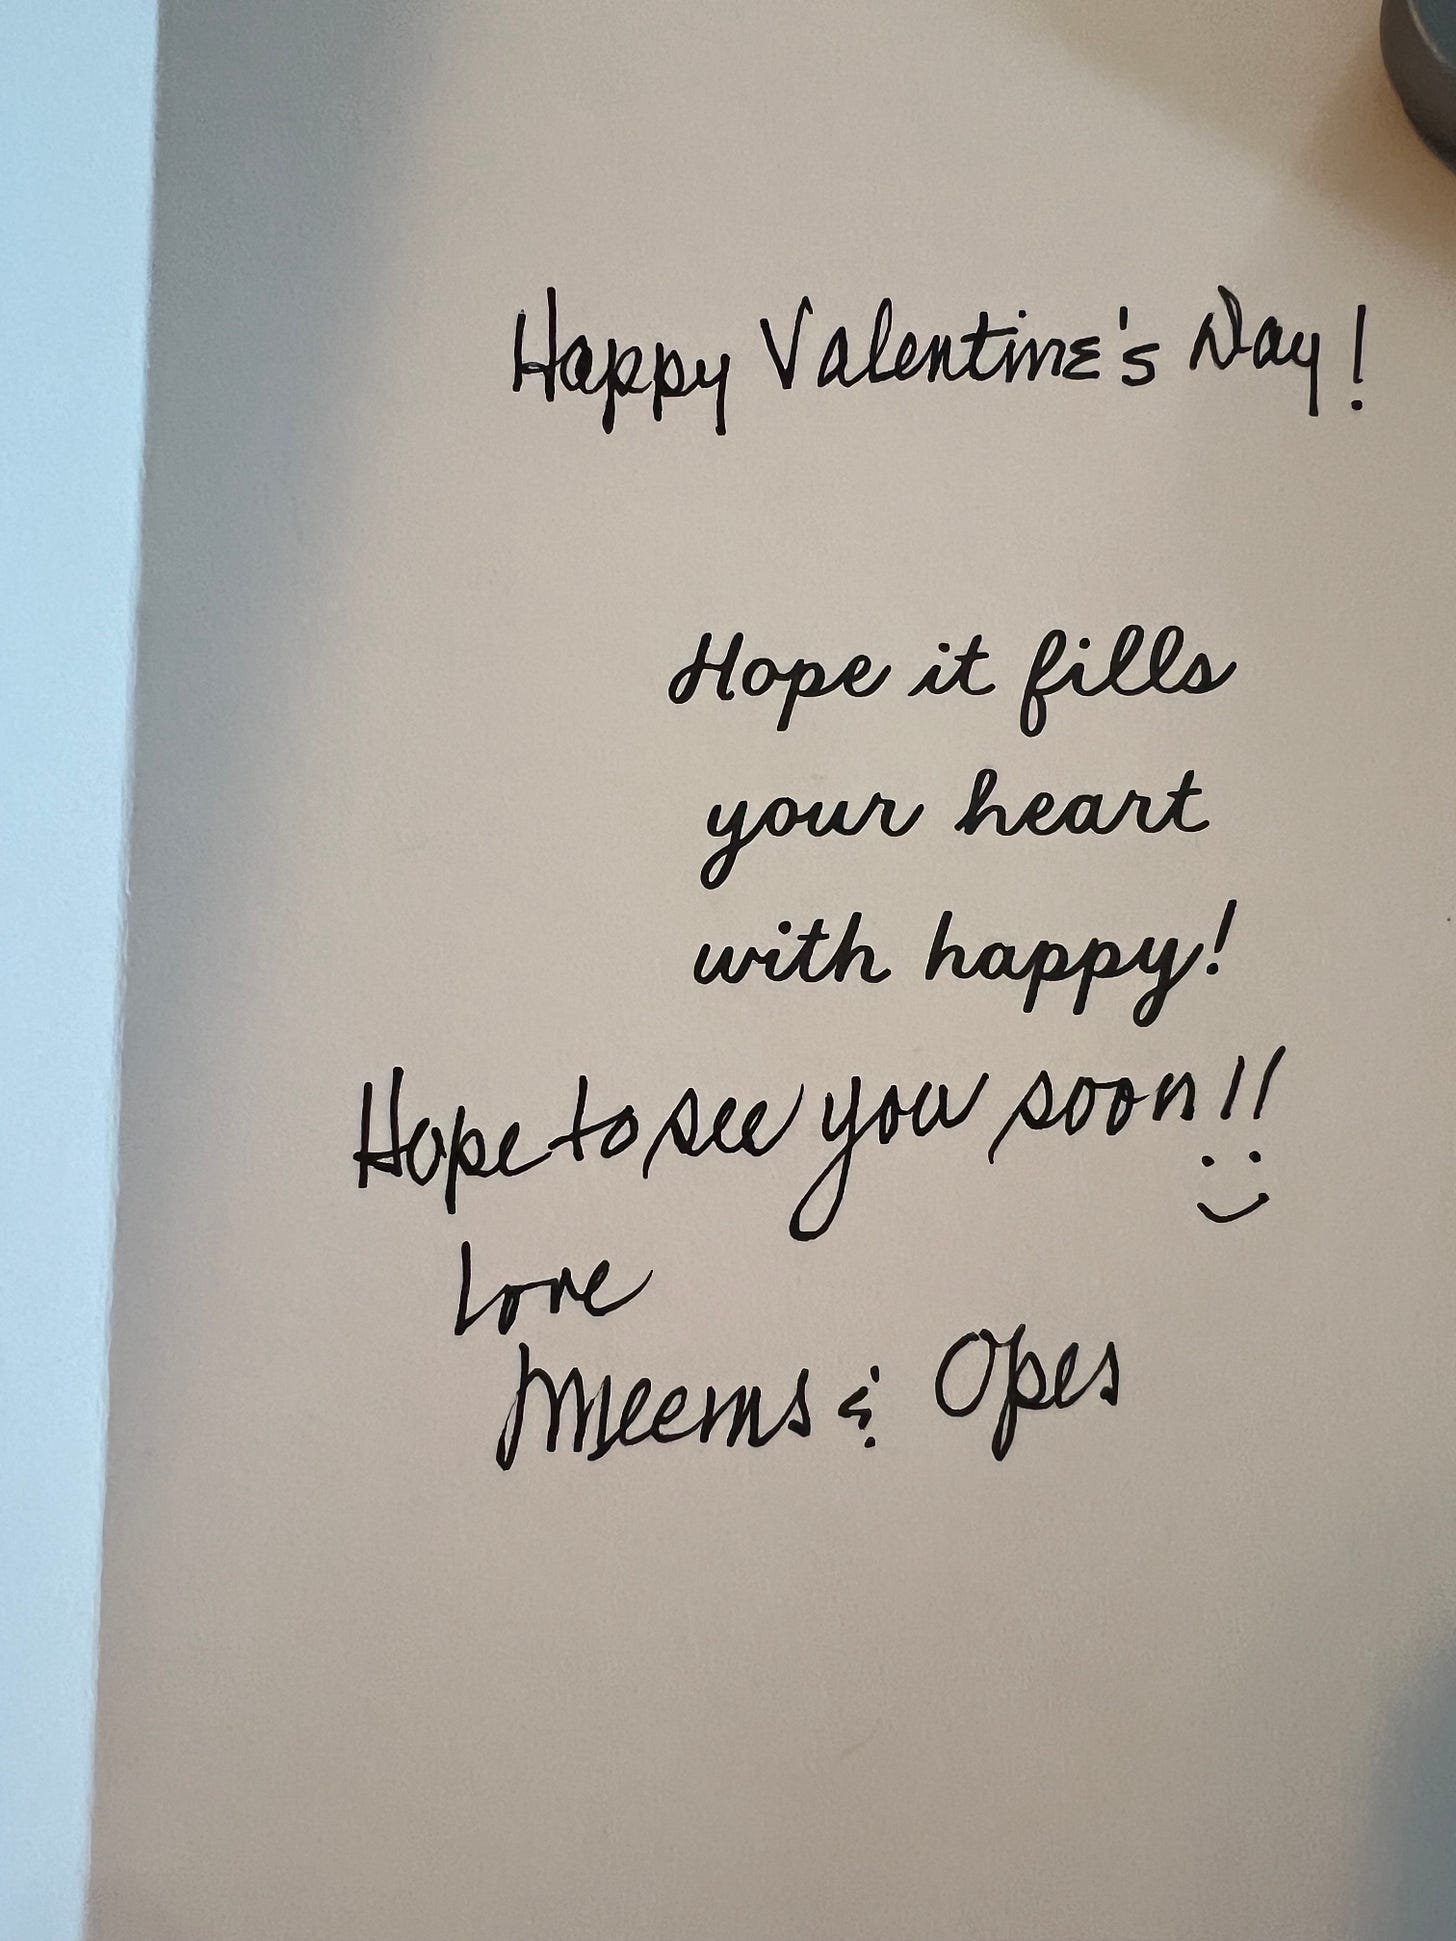 Happy Valentine's Day!
Hope it fills
your heart
with happy!
Hope to see you soon!!
Love
Meems & Opes